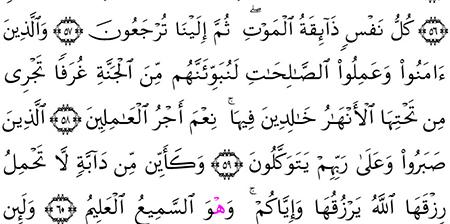 ﴿٥٦﴾ كُلُّ نَفْسٍ ذَآئِقَةُ ٱلْمَوْتِ ۖ ثُمَّ إِلَيْنَا تُرْجَعُونَ ﴿٥٧﴾ وَٱلَّذِينَ
ءَامَنُوا۟ وَعَمِلُوا۟ ٱلصَّـٰلِحَـٰتِ لَنُبَوِّئَنَّهُم مِّنَ ٱلْجَنَّةِ غُرَفًا تَجْرِى
مِن تَحْتِهَا ٱلْأَنْهَـٰرُ خَـٰلِدِينَ فِيهَا ۚ نِعْمَ أَجْرُ ٱلْعَـٰمِلِينَ ﴿٥٨﴾ ٱلَّذِينَ
صَبَرُوا۟ وَعَلَىٰ رَبِّهِمْ يَتَوَكَّلُونَ ﴿٥٩﴾ وَكَأَيِّن مِّن دَآبَّةٍ لَّا تَحْمِلُ
رِزْقَهَا ٱللَّهُ يَرْزُقُهَا وَإِيَّاكُمْ ۚ وَهُوَ ٱلسَّمِيعُ ٱلْعَلِيمُ ﴿٦٠﴾ وَلَئِن